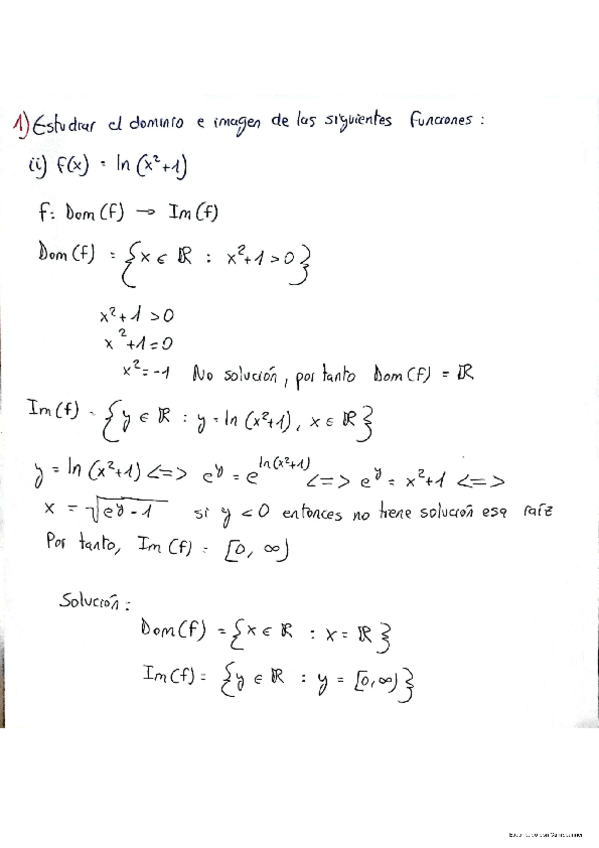 1) Estudiar el dominio e imagen de las siguientes funciones:
(ii) f(x) = ln (x²+1)
f: Dom(f) → Im(f)
Dom(f) = {x ∈ ℝ : x²+1>0}
x²+1>0
x²+1=0
x²=-1 No solución, por tanto Dom(f) = ℝ
Im(f) = {y ∈ ℝ : y = ln (x²+1), x ∈ ℝ}
y = ln (x²+1) <=> e^y = e^ln(x²+1) <=> e^y = x²+1 <=>
x = √(e^y-1) si y < 0 entonces no tiene solución esa raíz
Por tanto, Im(f) = [0, ∞)
Solución:
Dom(f) = {x ∈ ℝ : x = ℝ}
Im(f) = {y ∈ ℝ : y = [0,∞)}